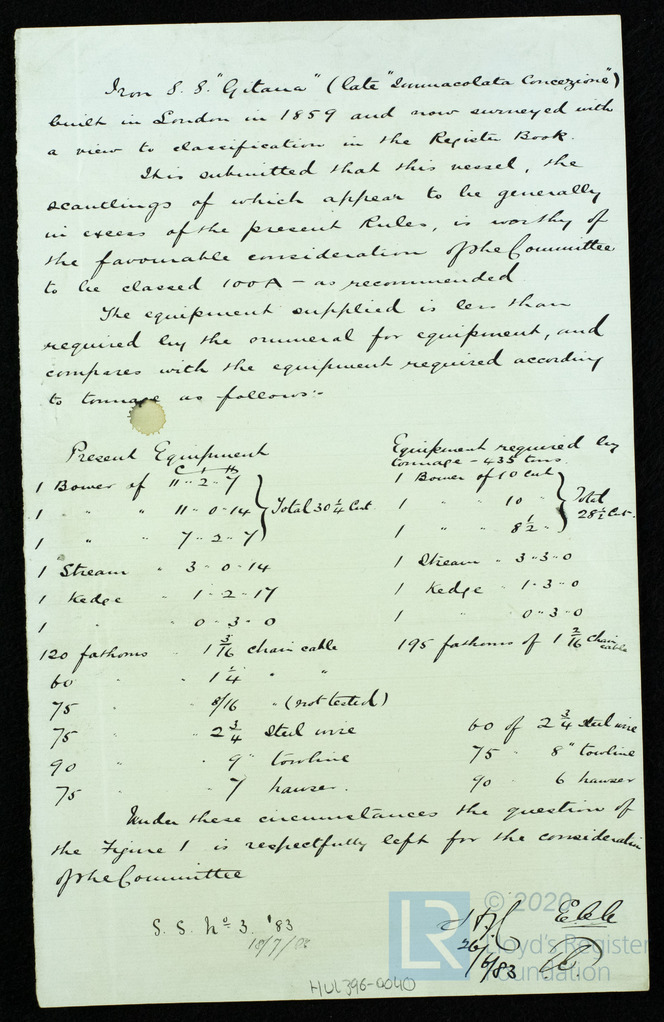 Iron S.S. "Gitana" (late "Immacolata Concezione")
built in London in 1859 and now surveyed with
a view to classification in the Register Book.
It is submitted that this vessel, the
scantlings of which appear to be generally
in excess of the present Rules, is worthy of
the favourable consideration of the Committee
to be classed 100A - as recommended.
The equipment supplied is less than
required by the numeral for equipment, and
compares with the equipment required according
to tonnage as follows:-
Present Equipment
1 Bower of 11 - 2 - 7
1 " " 11 - 0 - 14 } Total 30 1/4 Cwt.
1 " " 7 - 2 - 7
1 Stream 3 - 0 - 14
1 Kedge 1 - 2 - 17
1 " 0 - 3 - 0
120 fathoms " 1 3/16 chain cable
60 " " 1 1/4 " "
75 " " 8/16 " (not tested)
75 " " 2 3/4 Steel wire
90 " " 9" towline
75 " " 7 hawser.
Equipment required by
tonnage - 435 tons.
1 Bower of 10 cwt
1 " " 10 " } Total 28 1/2 Cwt.
1 " " 8 1/2 "
1 Stream " 3 - 3 - 0
1 Kedge " 1 - 3 - 0
1 " 0 - 3 - 0
195 fathoms of 1 2/16 chain cable
60 of 2 3/4 steel wire
75 " 8" towline
90 " 6 hawser
Under these circumstances the question of
the Figure 1 is respectfully left for the consideration
of the Committee
S.S. No. 3. '83
18/7/03
26/6/83
LR © 2020
Lloyd's Register
Foundation
HUL396-0040